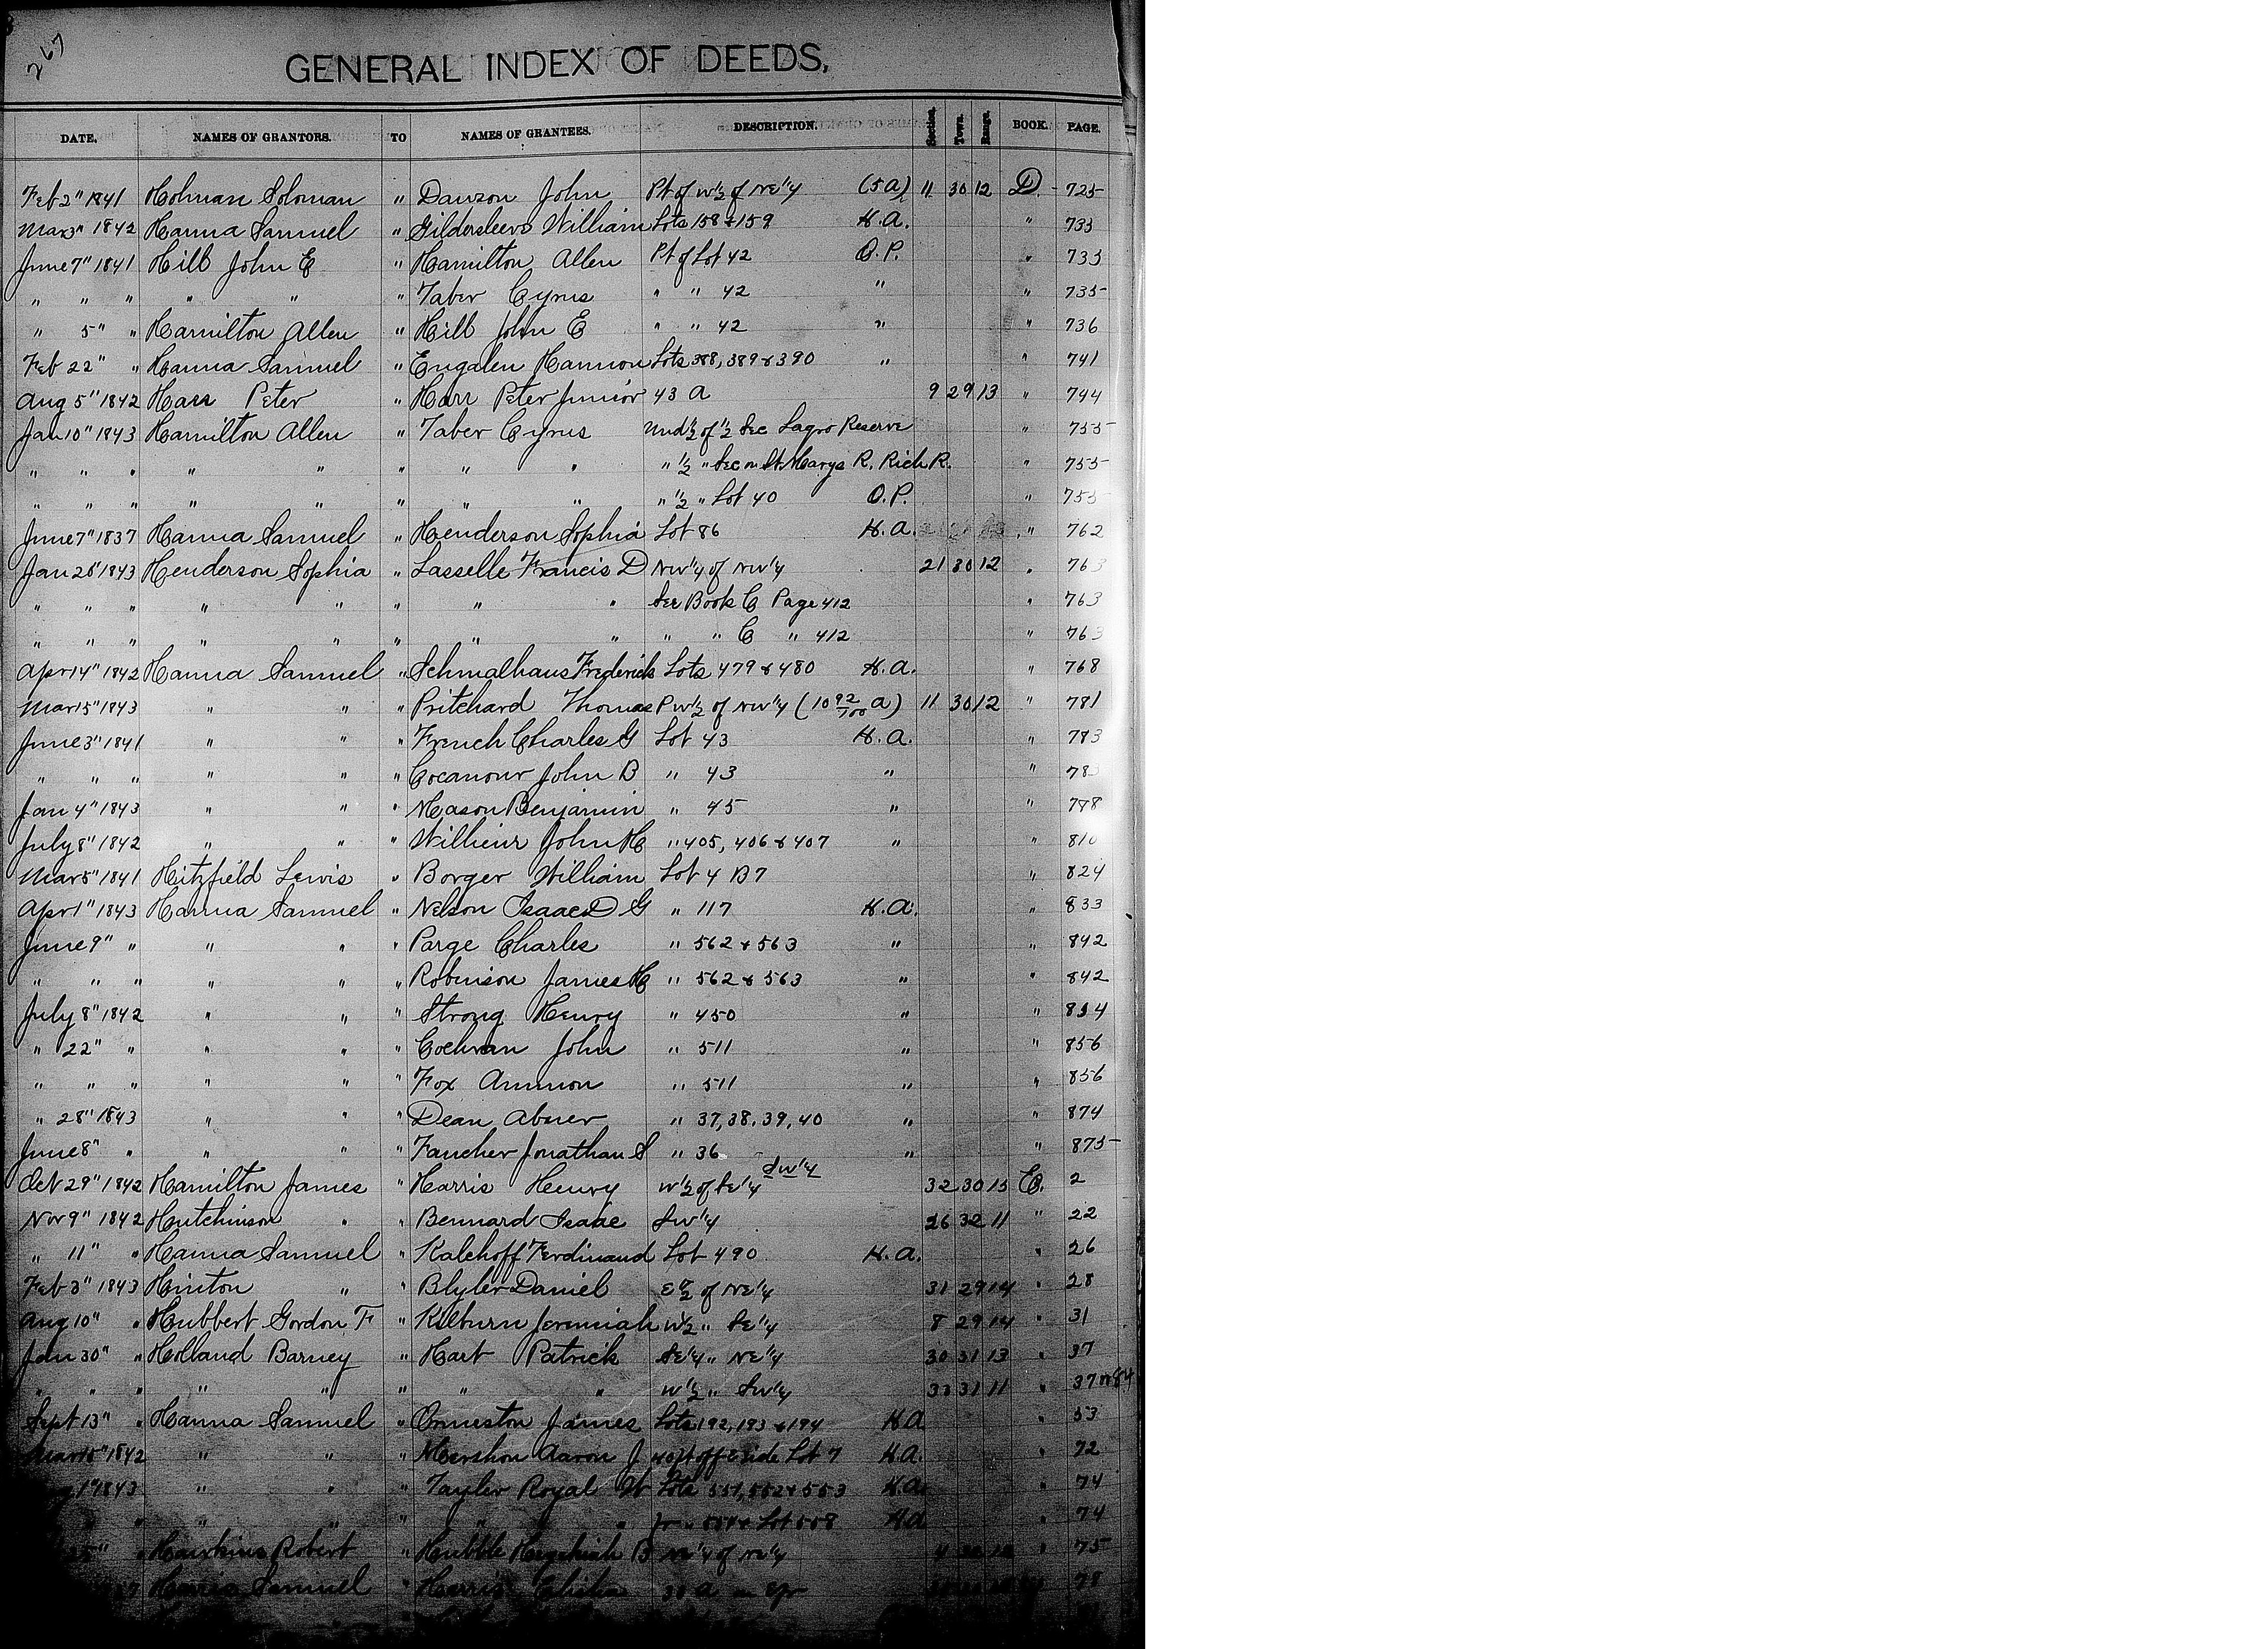 267
GENERAL INDEX OF DEEDS,
DATE. NAMES OF GRANTORS. TO NAMES OF GRANTEES. DESCRIPTION. Section. Town. Range. BOOK. PAGE.
Feb 2" 1841 Holman Soloman " Dawson John Pt of W½ of NE¼ (5a) 11 30 12 D. 725
Mar 3" 1842 Hanna Samuel " Gildersleeve William Lots 158 & 159 H.A. " 733
June 7" 1841 Hill John E " Hamilton Allen Pt of Lot 42 O.P. " 735
" " " " " " Taber Cyrus " " 42 " " 735
" 5" " Hamilton Allen " Hill John E " " 42 " " 736
Feb 22" " Hanna Samuel " Engalen Hannon Lots 388, 389 & 390 " " 741
Aug 5" 1842 Harr Peter " Harr Peter Junior 43 A 9 29 13 " 744
Jan 10" 1843 Hamilton Allen " Taber Cyrus Und ½ of ½ Sec Lagro Reserve " 755
" " " " " " " " " ½ " Sec on St Marys R. Rich R. " 755
" " " " " " " " " ½ " Lot 40 O.P. " 755
June 7" 1837 Hanna Samuel " Henderson Sophia Lot 86 H.A. " 762
Jan 26" 1843 Henderson Sophia " Lasselle Francis D NW¼ of NW¼ 21 30 12 " 763
" " " " " " " " See Book C Page 412 " 763
" " " " " " " " " " C " 412 " 763
Apr 14" 1842 Hanna Samuel " Schmalhaus Frederick Lots 479 & 480 H.A. " 768
Mar 15" 1843 " " " Pritchard Thomas P W½ of NW¼ (10 92/100 a) 11 30 12 " 781
June 3" 1841 " " " French Charles G Lot 43 H.A. " 783
" " " " " " Cocanour John B " 43 " " 783
Jan 4" 1843 " " " Mason Benjamin " 45 " " 798
July 8" 1842 " " " John H " 405, 406 & 407 " " 810
Mar 5" 1841 Hitzfield Lewis " Borger William Lot 4 B 7 " 824
Apr 1" 1843 Hanna Samuel " Nelson Isaac D G " 117 H.A. " 833
June 9" " " " " Parge Charles " 562 & 563 " " 842
" " " " " " Robinson James H " 562 & 563 " " 842
July 8" 1842 " " " Strong Henry " 450 " " 854
" 22" " " " " Cochran John " 511 " " 856
" " " " " " Fox Ammon " 511 " " 856
" 28" 1843 " " " Dean Abner " 37, 38, 39, 40 " " 874
June 8" " " " " Faucher Jonathan S " 36 " " 875
Oct 29" 1842 Hamilton James " Harris Henry W½ of SE¼ SW¼ 32 30 15 E. 2
Nov 9" 1842 Hutchinson " " Bennard Isaac SW¼ 26 32 11 " 22
" 11" " Hanna Samuel " Kalehoff Ferdinand Lot 490 H.A. " 26
Feb 3" 1843 Hinton " " Blyler Daniel E½ of NE¼ 31 29 14 " 28
Aug 10" " Hubbert Gordon F " Kilburn Jeremiah W½ " SE¼ 8 29 14 " 31
Jan 30" " Holland Barney " Hart Patrick SE¼ " NE¼ 30 31 13 " 37
" " " " " " " " W½ " SW¼ 33 31 11 " 37
Sept 13" " Hanna Samuel " Ormeston James Lots 192, 193 & 194 H.A " 53
Mar 15" 1842 " " " Mershon Aaron J 40 ft off E side Lot 7 H.A. " 72
1" 1843 " " " Tayler Royal W Lots 551, 552 & 553 H.A. " 74
" " " " " Lot 558 H.A " 74
25" " Hawkins Robert " Hubble Hezekiah B NE¼ of NE¼ " 75
Samuel " Harris 78